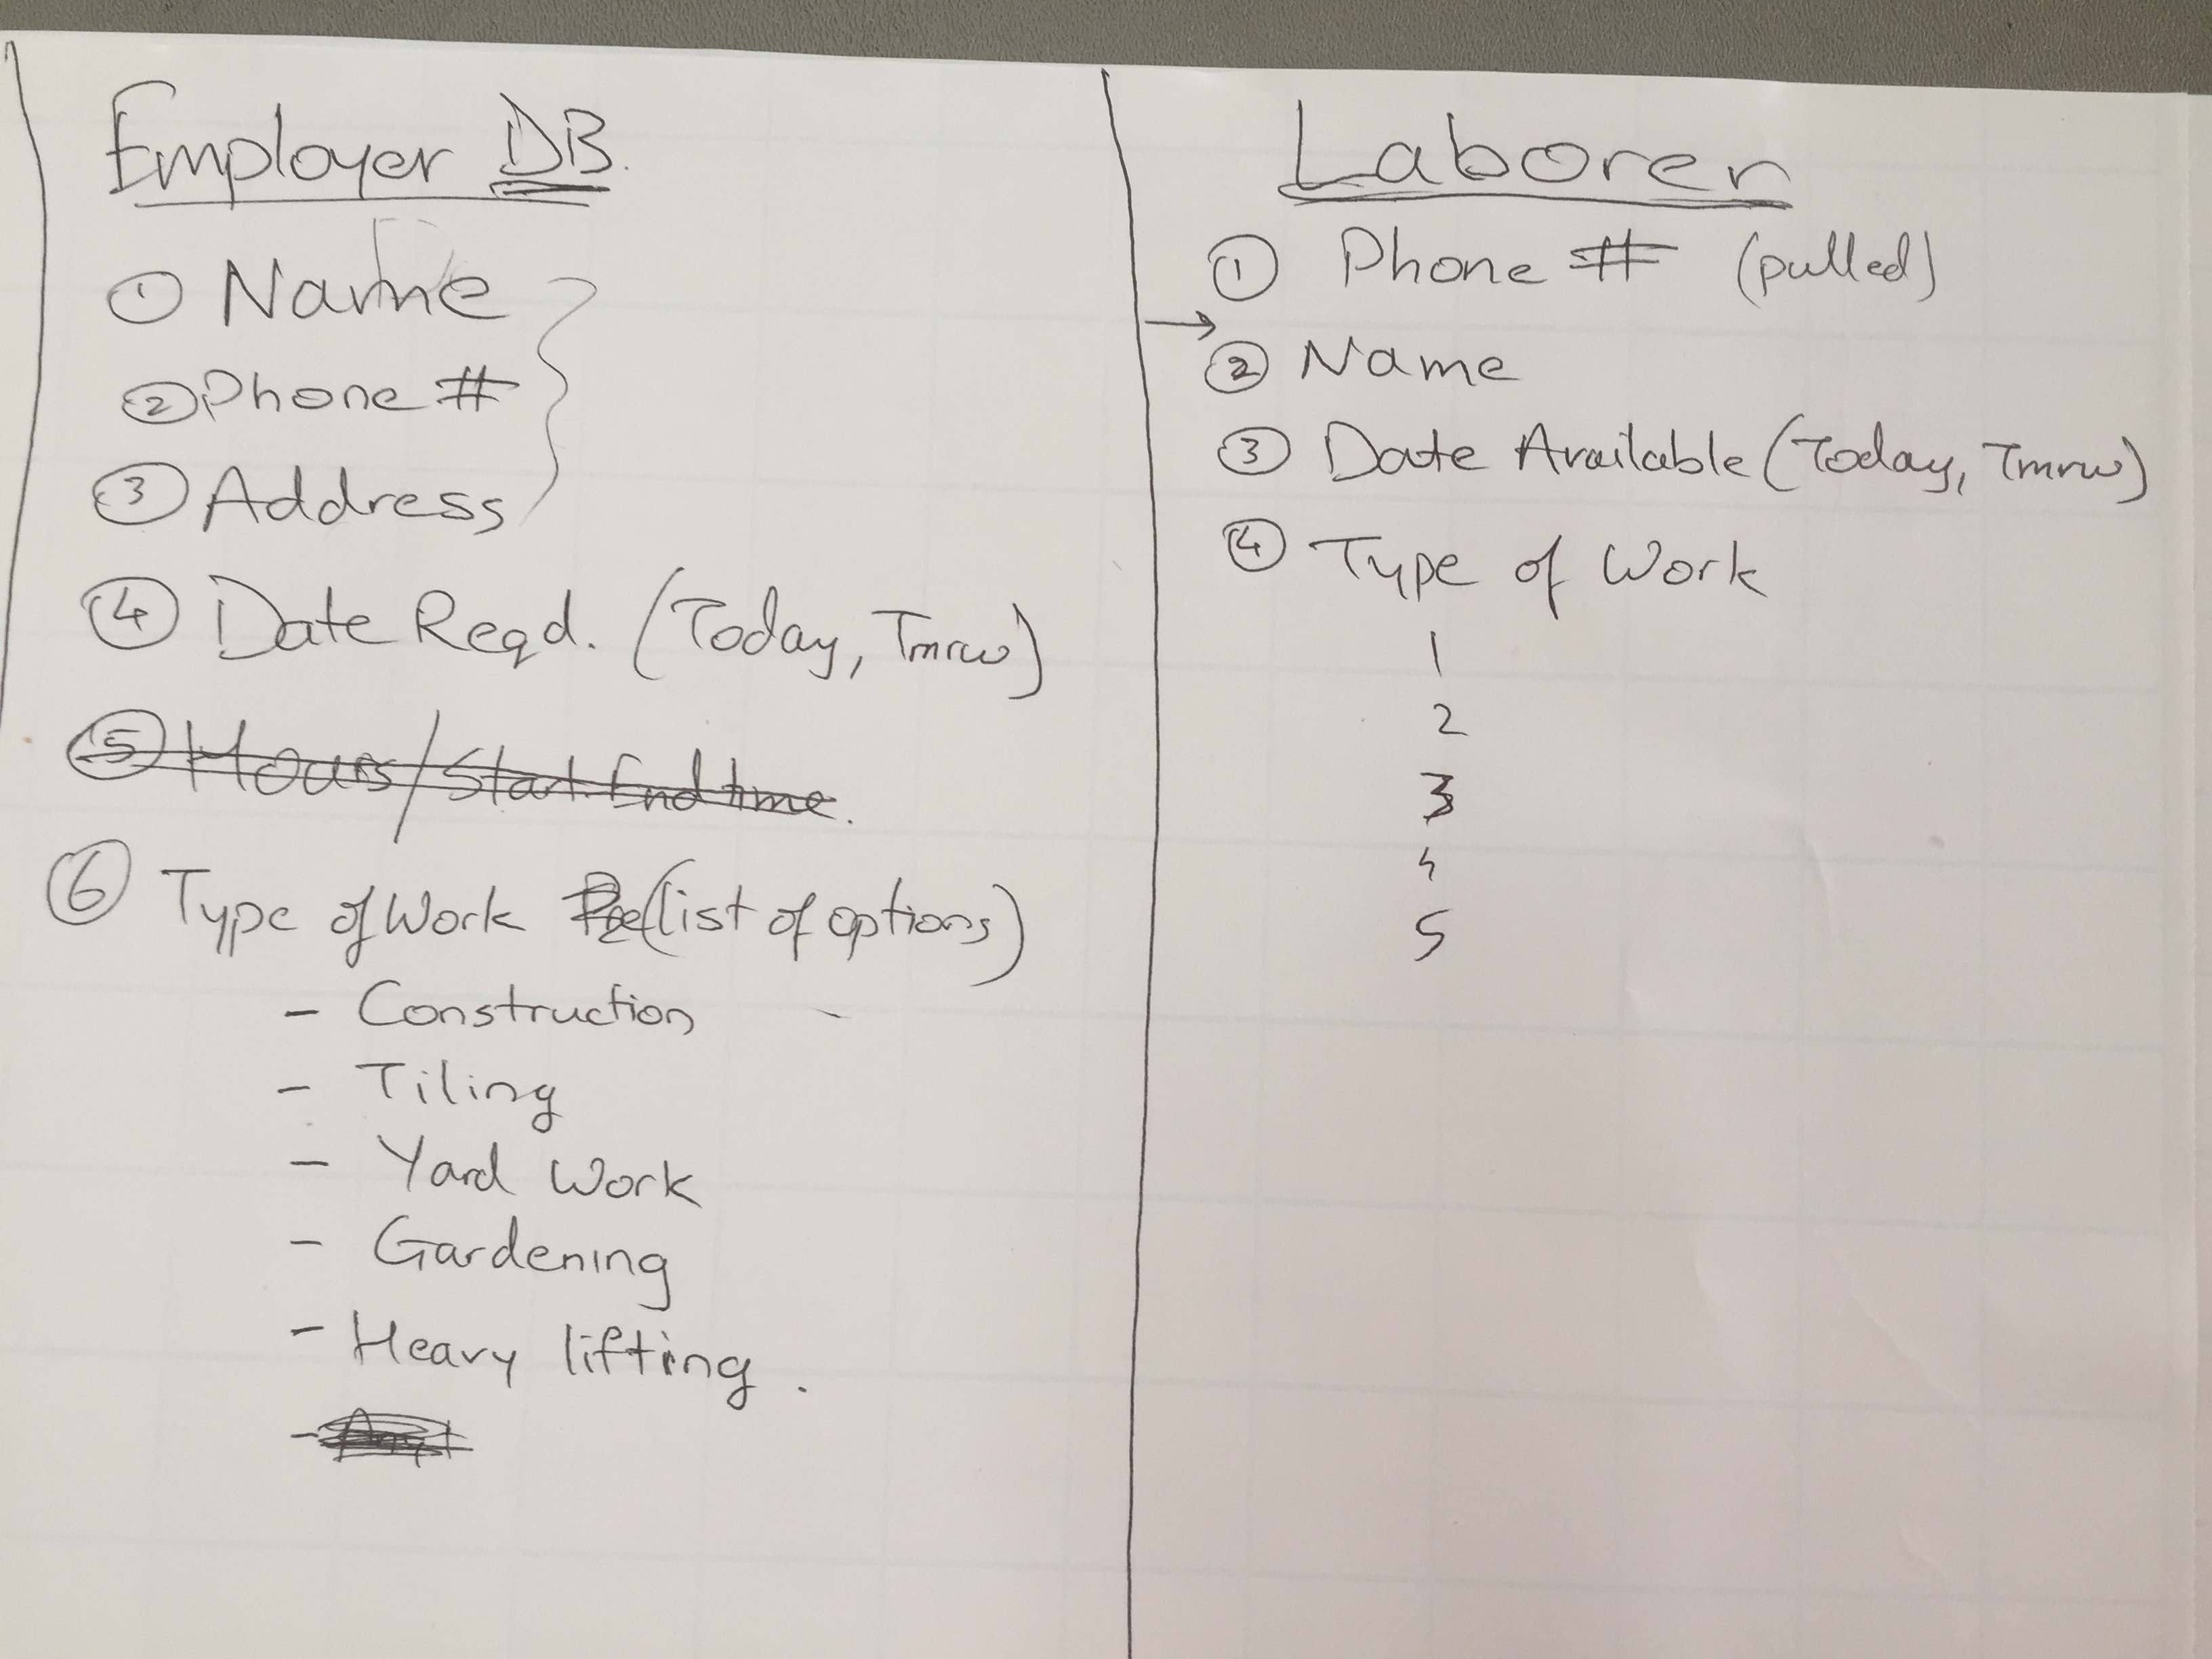 Employer DB.
① Name
② Phone #
③ Address
④ Date Reqd. (Today, Tmrw)
⑤ Hours/Start End time.
⑥ Type of Work (list of options)
- Construction
- Tiling
- Yard Work
- Gardening
- Heavy lifting.
-
Laborer
① Phone # (pulled)
→
② Name
③ Date Available (Today, Tmrw)
④ Type of Work
1
2
3
4
5